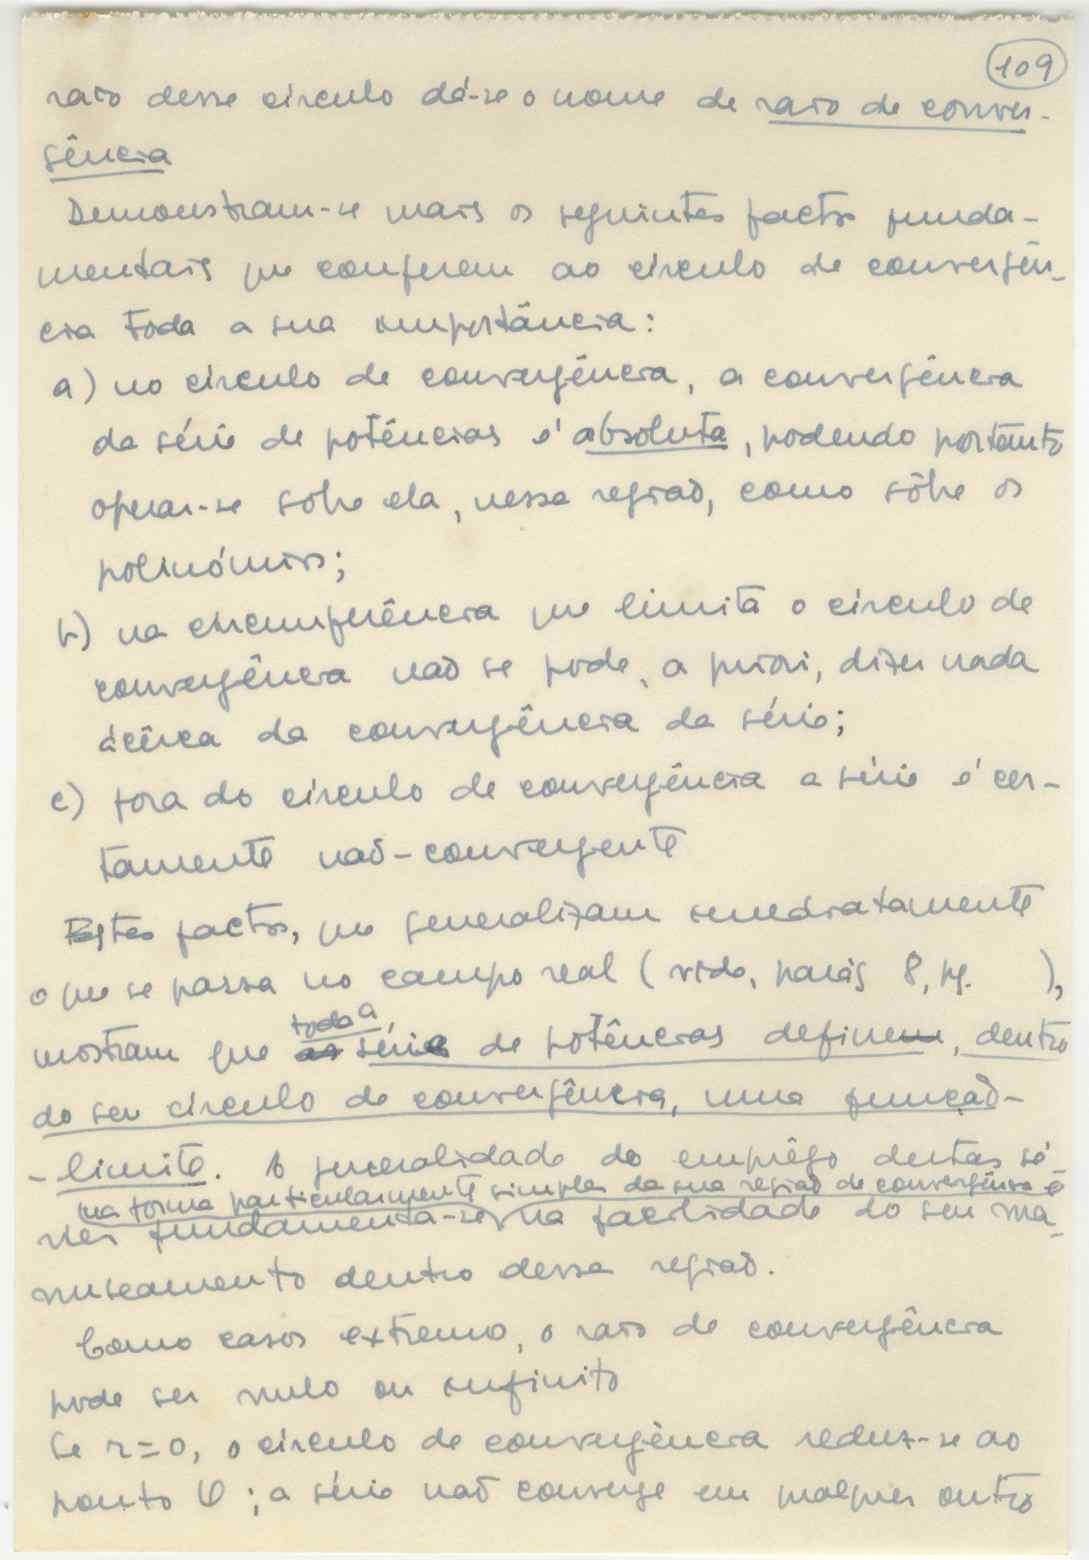 109
raio desse círculo dá-se o nome de raio de conver-
gência
Demonstram-se mais os seguintes factos funda-
mentais que conferem ao círculo de convergên-
cia toda a sua importância:
a) no círculo de convergência, a convergência
da série de potências é absoluta, podendo portanto
operar-se sôbre ela, nessa região, como sôbre os
polinómios;
b) na circunferência que limita o círculo de
convergência não se pode, a priori, dizer nada
ácêrca da convergência da série;
c) fora do círculo de convergência a série é cer-
tamente não-convergente
Estes factos, que generalizam imediatamente
o que se passa no campo real (vide, parág 8, pg. ),
toda a
mostram que as série de potências define, dentro
do seu círculo de convergência, uma função-
-limite. A generalidade do emprêgo destas sé-
na forma particularmente simples da sua região de convergência e
ries fundamenta-se na facilidade do seu ma-
nuseamento dentro dessa região.
Como casos extremo, o raio de convergência
pode ser nulo ou infinito
Se r=0, o círculo de convergência reduz-se ao
ponto 0; a série não converge em qualquer outro